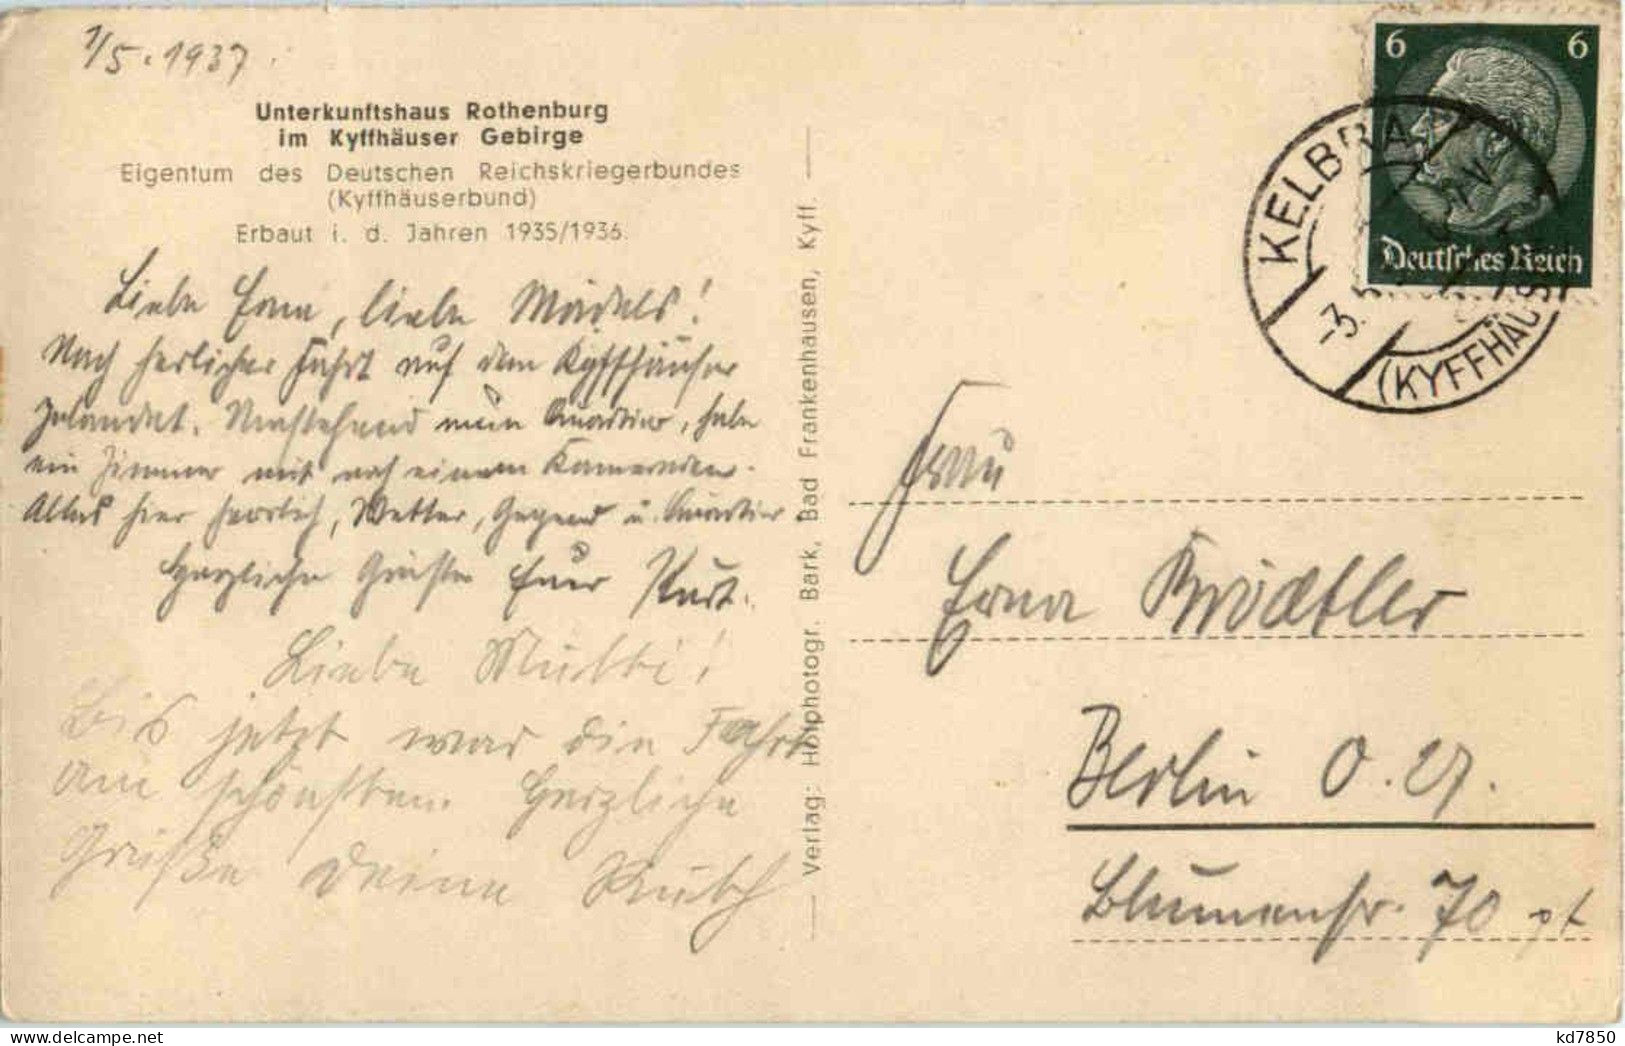 1/5. 1937.
Unterkunftshaus Rothenburg
im Kyffhäuser Gebirge
Eigentum des Deutschen Reichskriegerbundes
(Kyffhäuserbund)
Erbaut i. d. Jahren 1935/1936.
Liebe Erna, liebe Mädels!
Nach herlicher Fahrt auf dem Kyffhäuser
gelandet. Umstehend mein Quartier, habe
ein Zimmer mit noch einem Kameraden.
Alles hier herrlich, Wetter, Gegend u. Quartier.
Herzliche Grüße Euer Kurt.
Liebe Mutti!
Bis jetzt war die Fahrt
am schönsten. Herzliche
Grüße Deine Ruth
Verlag: Hofphotogr. Bark, Bad Frankenhausen, Kyff.
6 6
Deutsches Reich
KELBRA
-3.5.
(KYFFHÄUS
Frau
Erna
Berlin O. 27.
Blumenstr. 70 pt
kd7850